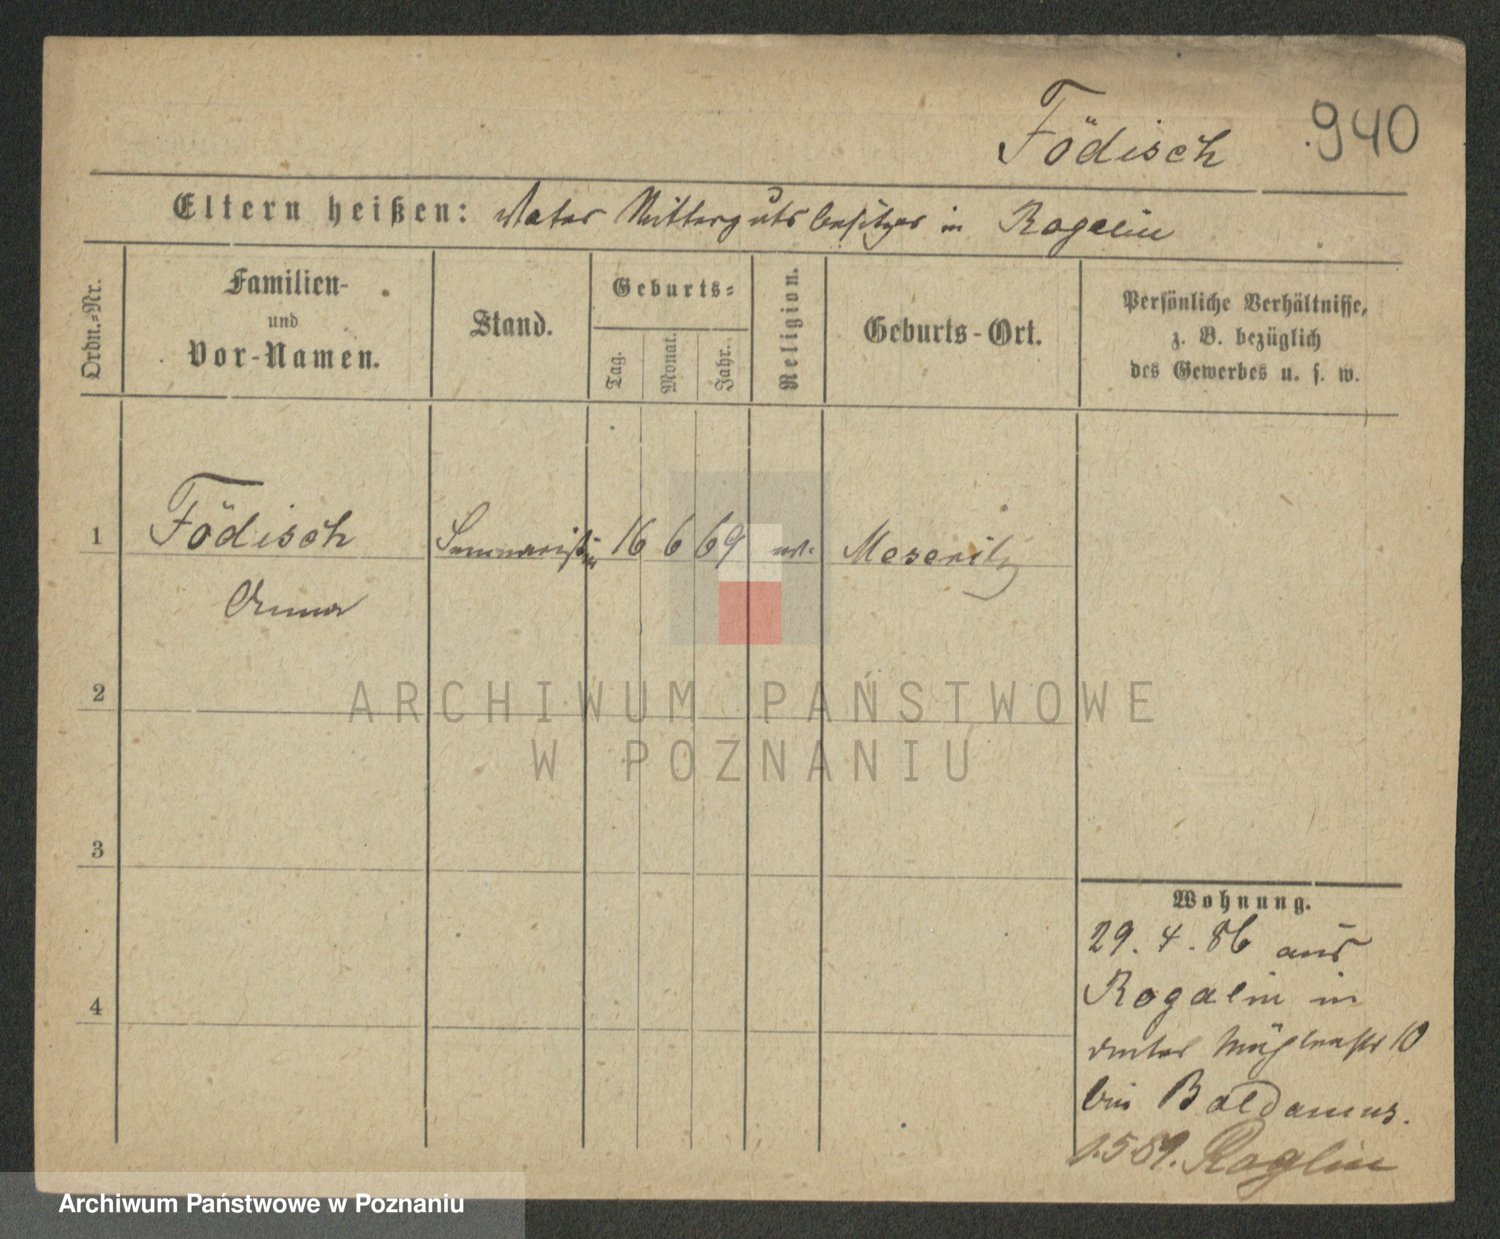 Födisch
940
Eltern heißen: Vater Rittergutsbesitzer in Rogalin
Ordn.-Nr.
Familien-
und
Vor-Namen.
Stand.
Geburts-
Tag.
Monat.
Jahr.
Religion.
Geburts-Ort.
Persönliche Verhältnisse,
z. B. bezüglich
des Gewerbes u. s. w.
1 Födisch Seminaristin 16 6 69 Meseritz
Anna
2
ARCHIWUM PAŃSTWOWE
W POZNANIU
3
4
Wohnung.
29. 4. 86 aus
Rogalin in
unter Mühlenstr 10
bei Baldamus.
1.5 89. Roglin
Archiwum Państwowe w Poznaniu